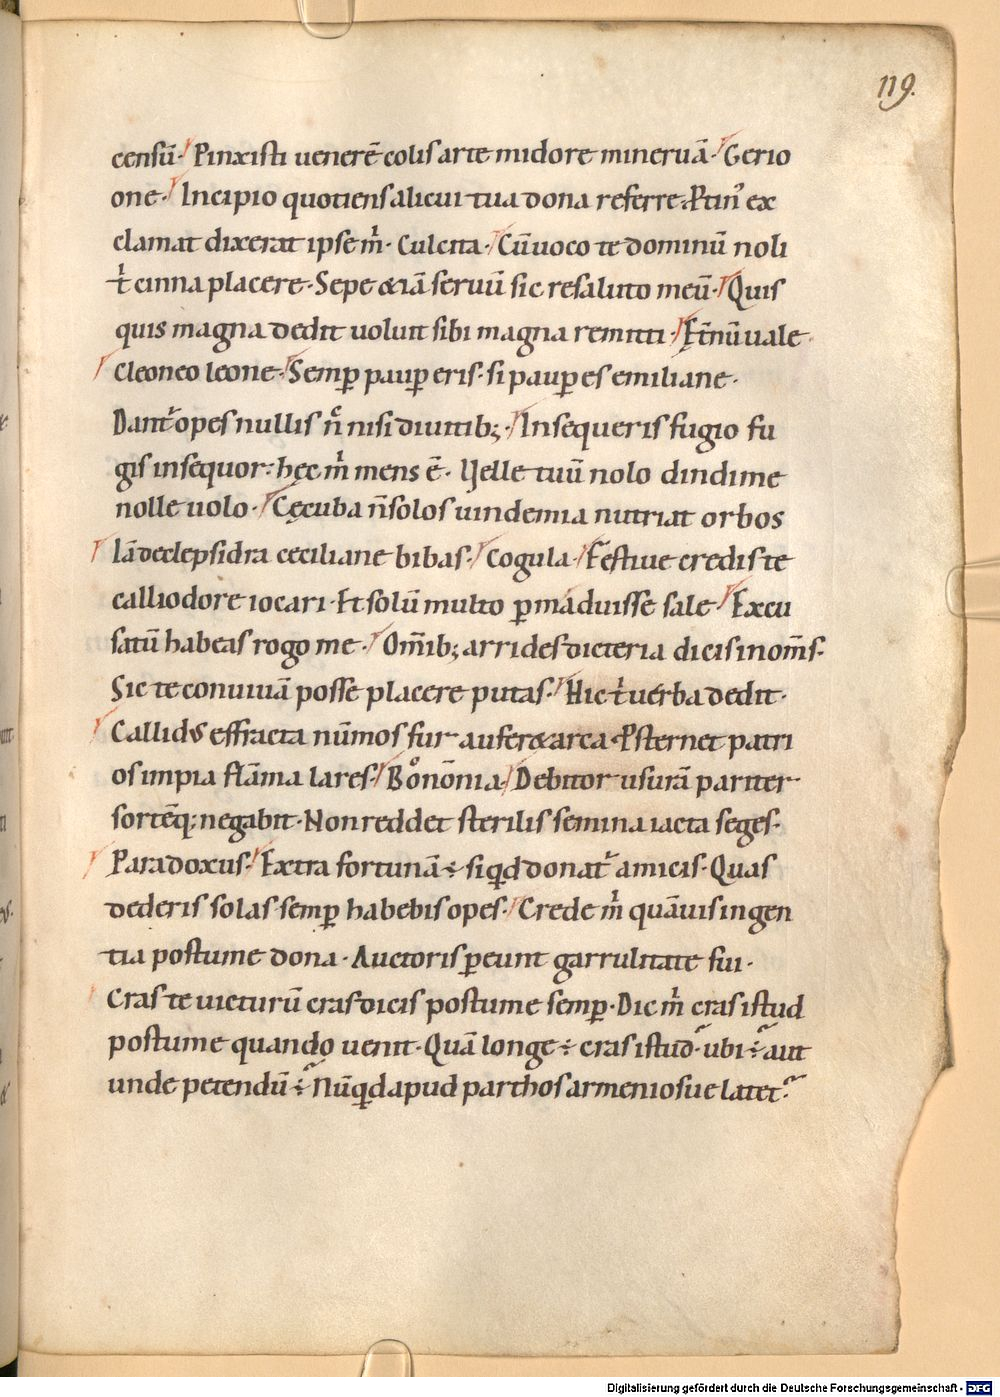 119.
censū· Pinxisti uenerē colis arte midore mineruā· Gerio
one· Incipio quotiens alicui tua dona referre· Ptin᷒ ex
clamat dixerat ipse m̄· Culcita· Cū uoco te dominū noli
t̄ cinna placere· Sepe &iā seruū sic resaluto meū· Quis
quis magna dedit uoluit sibi magna remitti· Et̄ nū uale
Cleoneo leone· Semꝑ pauꝑ eris· si pauꝑ es emiliane·
Dant᷒ opes nullis n̄ nisi diuitib;· Insequeris fugio fu
gis insequor: hęc m̄ mens ē· Uelle tuū nolo dindime
nolle uolo· Cęcuba n̄ solos uindemia nutriat orbos
lā de clepsidra ceciliane bibas· Cogula· Festiue credis te
calliodore iocari· Et solū multo ꝑmaduisse sale· Excu
satū habeas rogo me· Om̄ib; arrides dicteria dicis in om̄s·
Sic te conuiuā posse placere putas· Hic t̄ uerba dedit·
Callid᷒s effracta nūmos fur aufer& arca· Psternet patri
os impia flāma lares· Bonōnia· Debitor usurā pariter
sortēq; negabit· Non reddet sterilis semina iacta seges·
Paradoxus· Extra fortunā ÷ siqd donat᷒ amicis· Quas
dederis solas semꝑ habebis opes· Crede m̄ quāuis ingen
tia postume dona· Auctoris ꝑeunt garrulitate sui·
Cras te uicturū cras dicis postume semꝑ· Dic m̄ cras istud
postume quando uenit· Quā longe ÷ cras istud· ubi ÷ aut
unde petendū ÷ Nūqd apud parthos armeniosue latet·
Digitalisierung gefördert durch die Deutsche Forschungsgemeinschaft - DFG